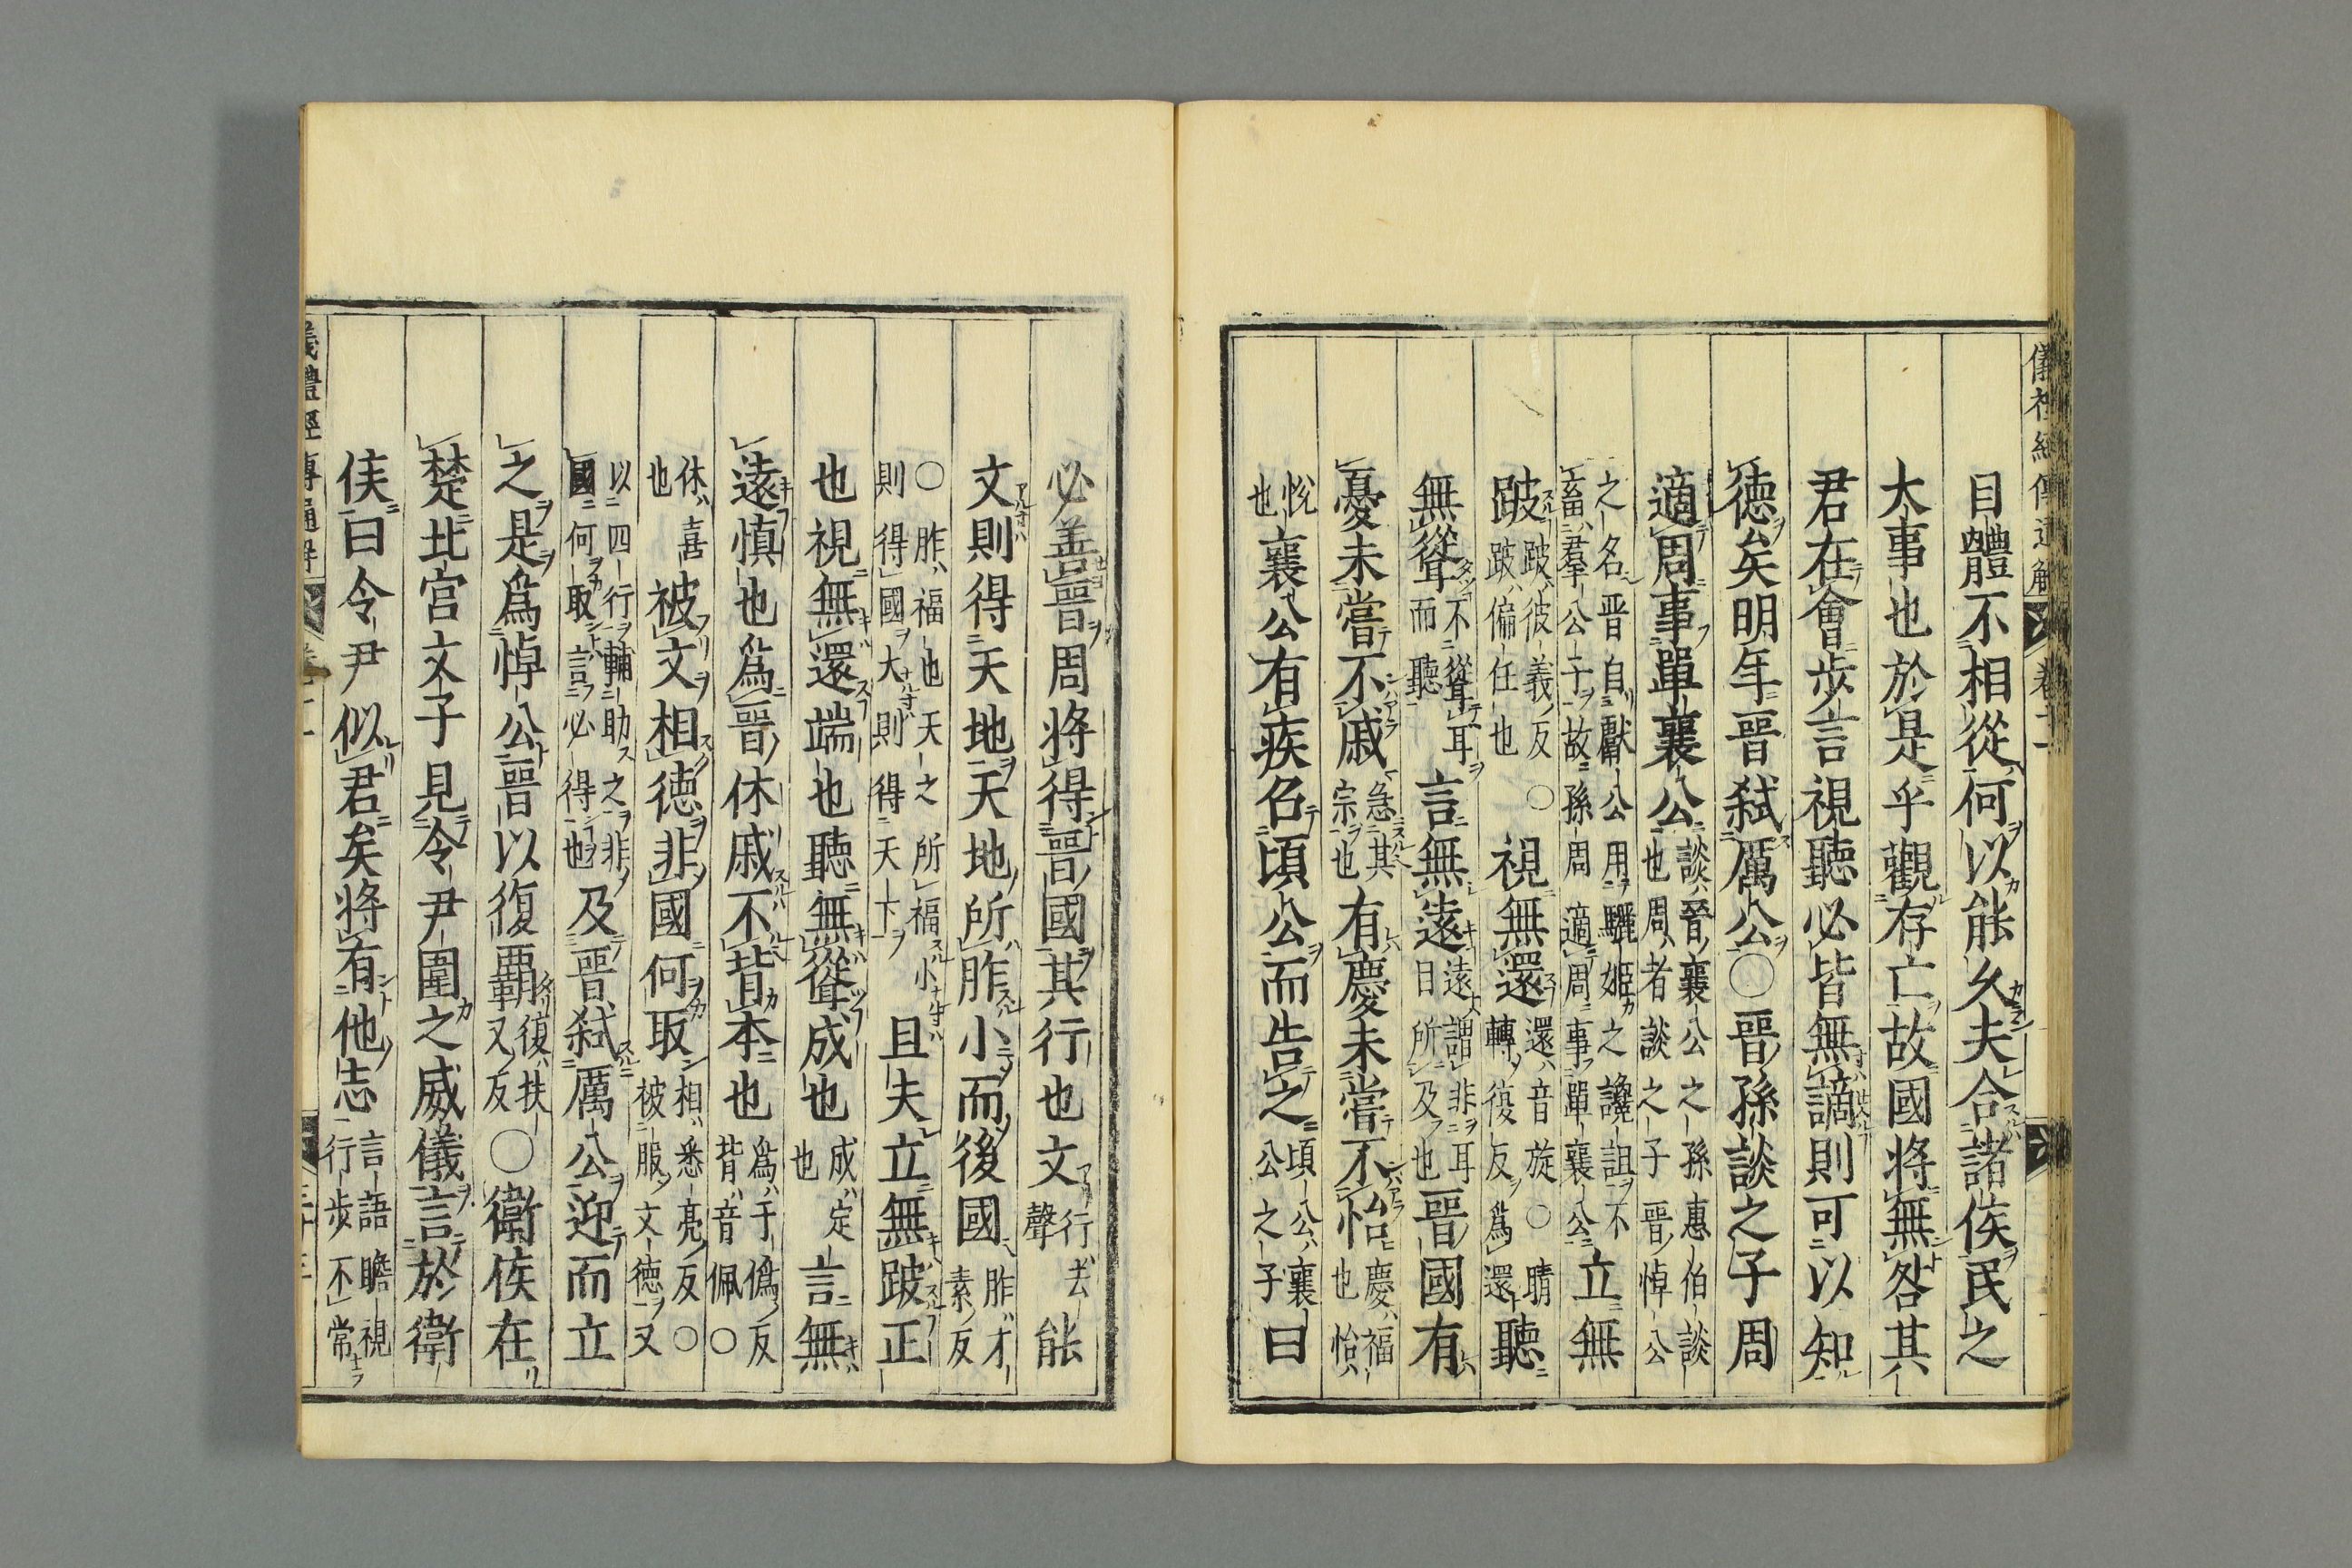 儀礼經傳通解 卷十一
目體不相從何以能久夫合諸侯民之
大事也於是乎觀存亡故國將無咎其
君在會步言視聽必皆無謫則可以知
德矣明年晉弑厲公〇晉孫談之子周
適周事單襄公談晉襄公之孫惠伯談也周者談之子晉悼公
之名晉自獻公用驪姬之讒詛不畜羣公子故孫周適周事單襄公立無
跛跛彼義反跛偏任也〇視無還還音旋〇睛轉復反爲還聽
無聳不聳耳而聽言無遠遠謂非耳目所及也晉國有
憂未嘗不戚急其宗也有慶未嘗不怡慶福也怡
悅也襄公有疾召頃公而告之頃公襄公之子曰
必善晉周將得晉國其行也文行去聲能
文則得天地天地所胙小而後國胙才素反
〇胙福也天之所福小則得國大則得天下且夫立無跛正
也視無還端也聽無聳成也成定也言無
遠慎也爲晉休戚不背本也爲于僞反背音佩〇
休喜也被文相德非國何取相悉亮反〇被服文德又
以四行輔助之非國何取言必得也及晉弑厲公迎而立
之是爲悼公晉以復霸復扶又反〇衛侯在
楚北宮文子見令尹圍之威儀言於衛
侯曰令尹似君矣將有他志言語瞻視行步不常
儀禮經傳通解 卷十一 三十三